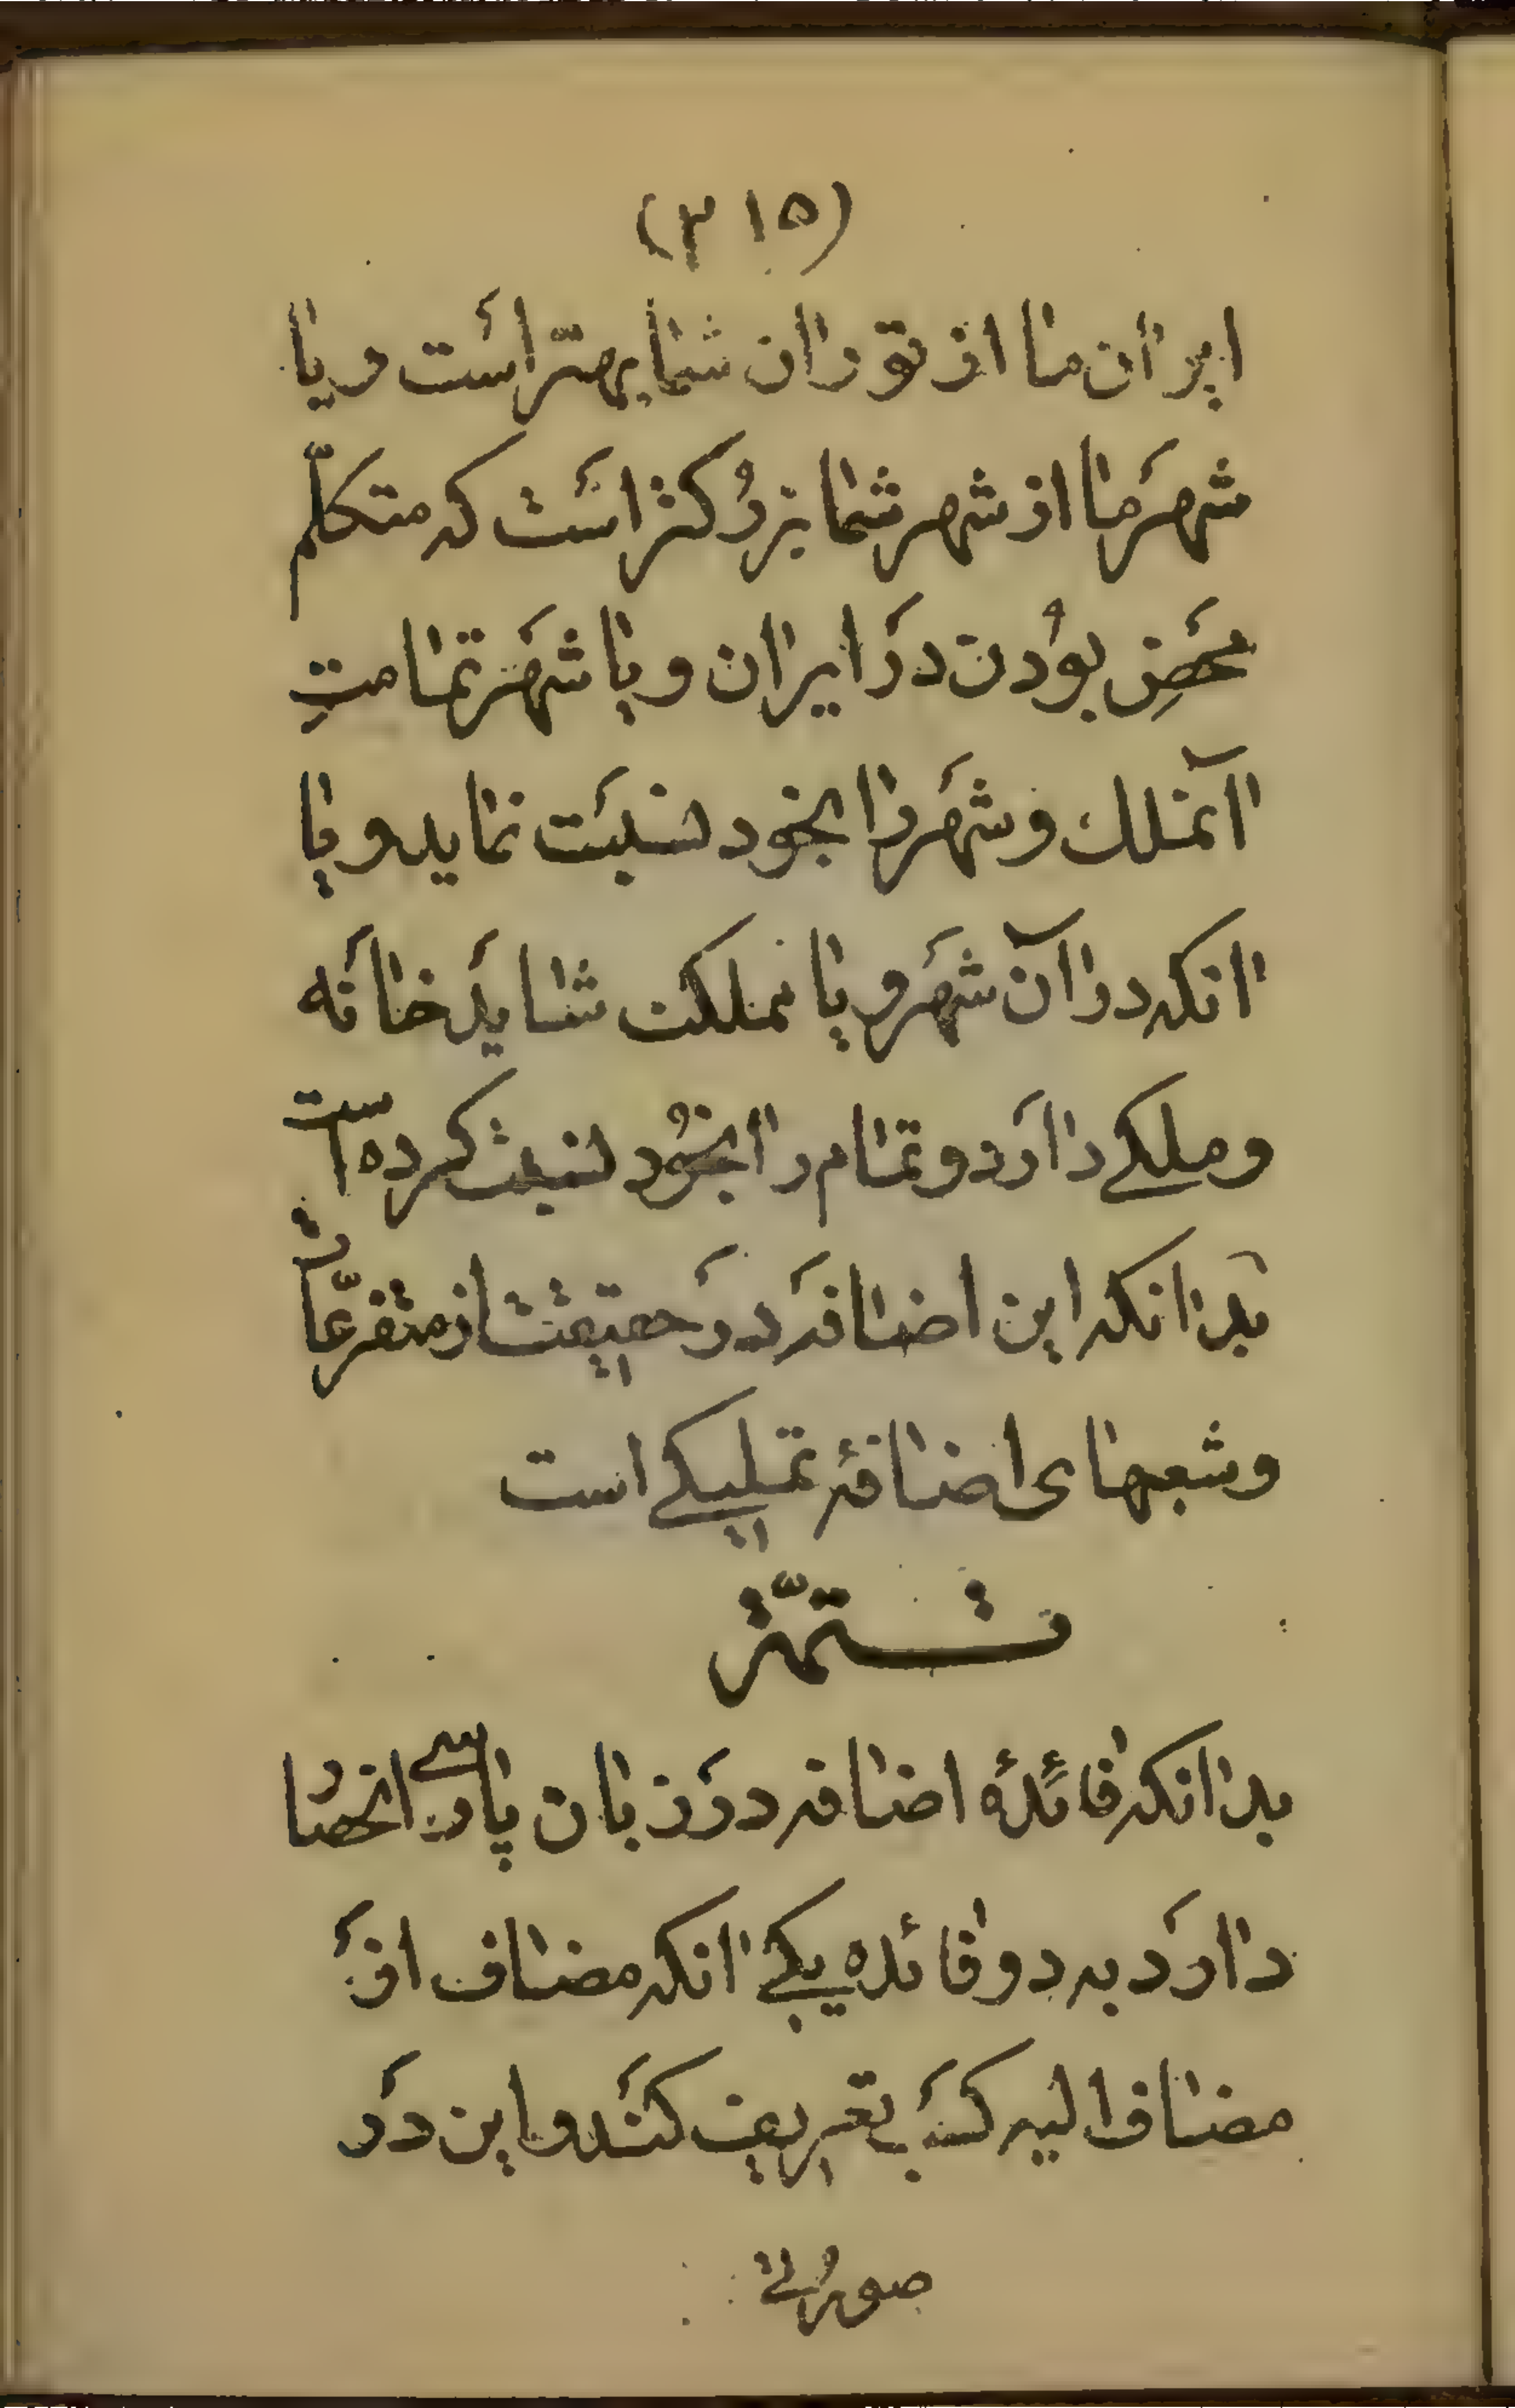 (۳۱۵)
ایران ما از توران شما بهتر است و یا
شهر ما از شهر شما بزرگتر است که متکلّم
محض بودن در ایران و یا شهر تمامتِ
آنملک و شهر را بخود نسبت نماید و یا
انکه در آن شهر و یا مملکت شاید خانه
و ملکی دارد و تمام را بخود نسبت کرده است
بدانکه این اضافه در حقیقت از متفرّعات
و شعبهای اضافهٔ تملیکی است
تتمّه
بدانکه فائدهٔ اضافه در زبان پارسی انحصار
دارد به دو فائده یکی انکه مضاف از
مضاف الیه کسب تعریف کند و این در
صورتی